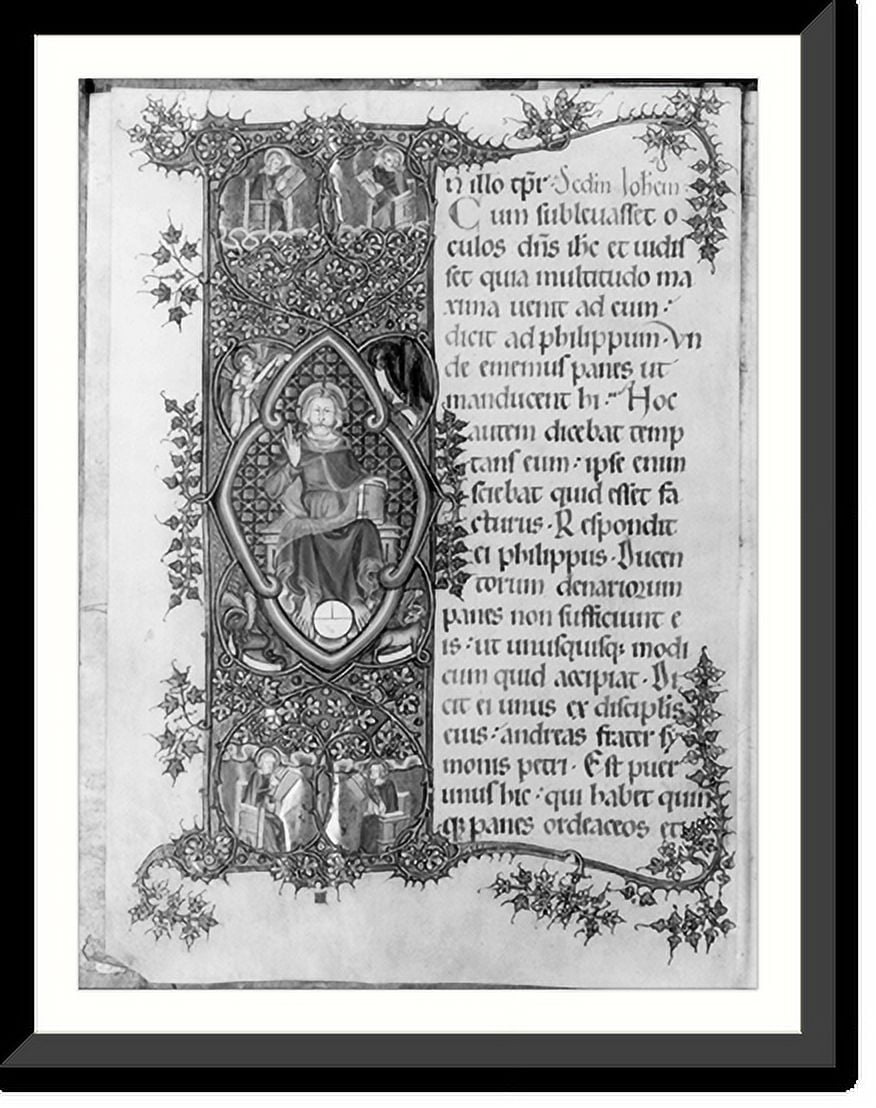 n illo tp̄r Scd̄m Johem
Cum subleuasset o
culos dn̄s ih̄c et uidis
set quia multitudo ma
xima uenit ad eum :
dicit ad philippum. Vn
de ememus panes ut
manducent hi. Hoc
autem dicebat temp
tans eum : ipse enim
sciebat quid esset fa
cturus. Respondit
ei philippus. Ducen
torum denariorum
panes non sufficiunt e
is : ut unusquisq; modi
cum quid accipiat. Di
cit ei unus ex discip̄lis
eius : andreas frater sy
monis petri. Est puer
unus hic : qui habet quin
q; panes ordeaceos et